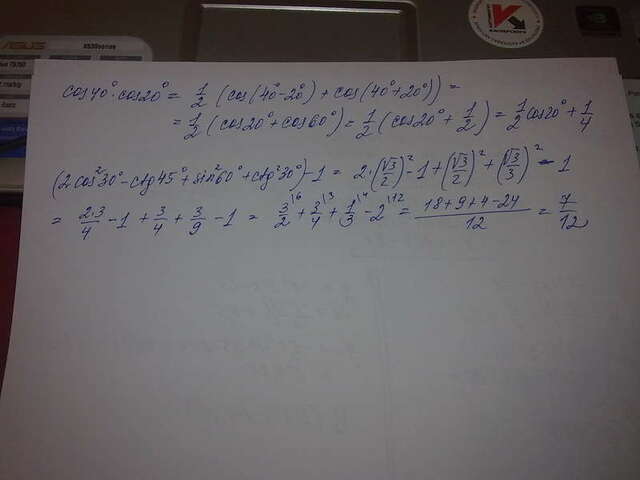 ASUS
cos40°·cos20° = 1/2 (cos(40°-20°) + cos(40°+20°)) =
= 1/2 (cos20° + cos60°) = 1/2 (cos20° + 1/2) = 1/2 cos20° + 1/4
(2cos²30° - ctg45° + sin²60° + ctg²30°) - 1 = 2·(√3/2)² - 1 + (√3/2)² + (√3/3)² - 1
= 2·3/4 - 1 + 3/4 + 3/9 - 1 = 3/2|6 + 3/4|3 + 1/3|4 - 2|12 = 18+9+4-24/12 = 7/12